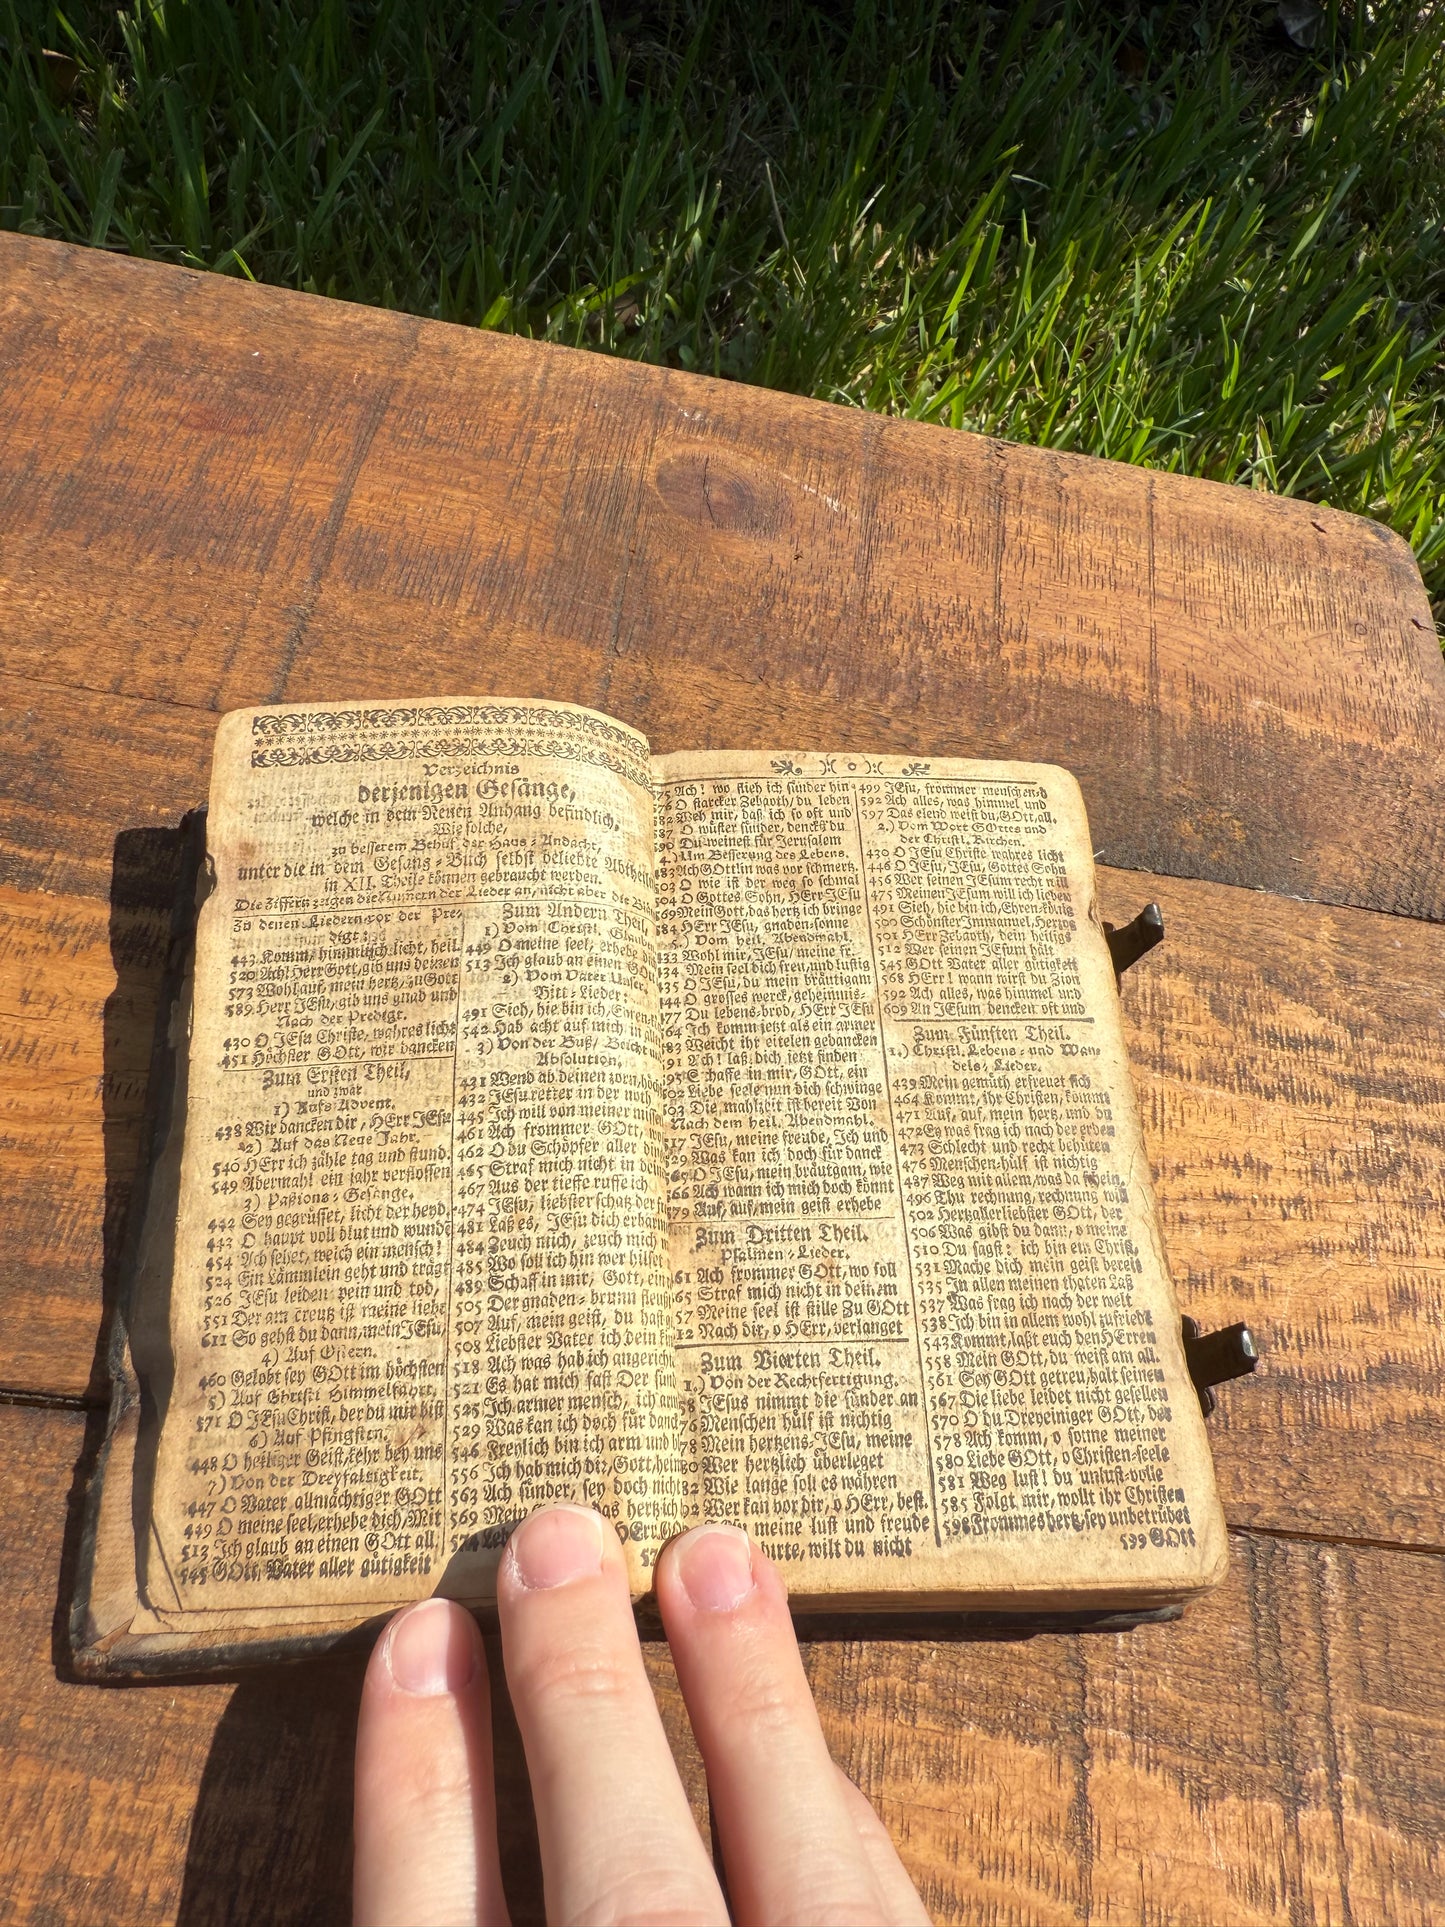 Verzeichnis
derjenigen Gesänge,
welche in dem Neuen Anhang befindlich,
Wie solche,
zu besserem Behuf der Haus-Andacht,
unter die in dem Gesang-Buch selbst beliebte
in XII. Theile können gebraucht werden.
Die Ziffern zeigen die Numern der Lieder an, nicht aber die
Zu denen Liedern vor der Pre-
digt:
443 Komm, himmlisch licht, heil.
520 Ach! Herr Gott, gib uns deinen
573 Wohlauf, mein hertz, zu Gott
589 Herr JEsu, gib uns gnad und
Nach der Predigt.
430 O JEsu Christe, wahres licht
451 Höchster GOtt, wir dancken
Zum Ersten Theil,
und zwar
1) Aufs Advent.
438 Wir dancken dir, HErr JEsu
2) Auf das Neue Jahr.
540 HErr ich zähle tag und stund.
549 Abermahl ein jahr verflossen
3) Paßions-Gesänge.
442 Sey gegrüsset, licht der heyd.
443 O haupt voll blut und wunde
454 Ach sehet, welch ein mensch!
524 Ein Lämmlein geht und trägt
526 JEsu leiden pein und tod,
551 Der am creutz ist meine liebe
611 So gehst du dann, mein JEsu,
4) Auf Ostern.
460 Gelobt sey GOtt im höchsten
5) Auf Christi Himmelfahrt,
571 O JEsu Christ, der du mir bist
6) Auf Pfingsten.
448 O heiliger Geist, kehr bey uns
7) Von der Dreyfaltigkeit.
447 O Vater allmächtiger GOtt
449 O meine seel, erhebe dich, Mit
513 Ich glaub an einen GOtt all.
545 GOtt Vater aller gütigkeit
Zum Andern Theil,
1) Vom Christl. Glauben
449 O meine seel, erhebe
513 Ich glaub an einen GOtt
2) Vom Vater Unser,
Bitt-Lieder:
491 Sieh, hie bin ich, Ehren-
542 Hab acht auf mich in
3) Von der Buß, Beicht
Absolution.
431 Wend ab deinen zorn,
432 JEsu retter in der noth
445 Ich will von meiner
461 Ach frommer GOtt, wo
462 O du Schöpfer aller
465 Straf mich nicht in dein
467 Aus der tieffe ruffe ich
474 JEsu, liebster schatz der
481 Laß es, JEsu dich erbarm
484 Zeuch mich, zeuch mich
485 Wo soll ich hin wer hilfet
489 Schaff in mir, Gott, ein
505 Der gnaden-brunn
507 Auf, mein geist, du hast
508 Liebster Vater ich dein
518 Ach was hab ich angericht
521 Es hat mich fast Der
525 Ich armer mensch, ich arm
529 Was kan ich doch für danck
546 Freylich bin ich arm und
556 Ich hab mich dir, Gott, heim
563 Ach sünder, sey doch nicht
569 Mein das hertz ich
HErr GOt
Ach! wo flieh ich sünder hin
O starcker Zebaoth/ du leben
Weh mir, daß ich so oft und
O wüster sünder, denckst du
Du weinest für Jerusalem
4.) Um Besserung des Lebens.
Ach GOtt! in was vor schmertz.
O wie ist der weg so schmal
O Gottes Sohn, HErr JEsu
Mein Gott, das hertz ich bringe
HErr JEsu, gnaden-sonne
5.) Vom heil. Abendmahl.
Wohl mir, JEsu/ meine fr.
Mein seel dich freu, und lustig
O JEsu, du mein bräutigam
O grosses werck, geheimnis-
Du lebens-brod, HErr JEsu
Ich komm jetzt als ein armer
Weicht ihr eitelen gedancken
Ach! laß dich jetzt finden
Schaffe in mir, GOtt, ein
Liebe seele nun dich schwinge
Die mahlzeit ist bereit Von
Nach dem heil. Abendmahl.
JEsu, meine freude, Ich und
Was kan ich doch für danck
O JEsu, mein bräutgam, wie
Ach wann ich mich doch könnt
Auf, auf, mein geist erhebe
Zum Dritten Theil.
Psalmen-Lieder.
Ach frommer GOtt, wo soll
Straf mich nicht in deinem
Meine seel ist stille Zu GOtt
Nach dir, o HErr, verlanget
Zum Vierten Theil.
1.) Von der Rechtfertigung.
JEsus nimmt die sünder an
Menschen hülf ist nichtig
Mein hertzens-JEsu, meine
Wer hertzlich überleget
Wie lange soll es währen
Wer kan vor dir, o HErr, best.
JEsu meine lust und freude
hirte, wilt du nicht
499 JEsu, frommer menschen-
592 Ach alles, was himmel und
597 Das elend weist du, GOtt, all.
2.) Vom Wort GOttes und
der Christl. Kirchen.
430 O JEsu Christe wahres licht
446 O JEsu, JEsu, Gottes Sohn
456 Wer seinen JEsum recht will
475 Meinen JEsum will ich lieben
491 Sieh, hie bin ich, Ehren-könig
500 Schönster Immanuel, Hertzog
501 HErr Zebaoth, dein heiligs
512 Wer seinen JEsum hält
545 GOtt Vater aller gütigkeit
568 HErr! wann wirst du Zion
592 Ach alles, was himmel und
609 An JEsum dencken oft und
Zum Fünften Theil.
1.) Christl. Lebens- und Wan-
dels-Lieder.
439 Mein gemüth erfreuet sich
464 Kommt, ihr Christen, kommt
471 Auf, auf, mein hertz, und du
472 Es was frag ich nach der erden
473 Schlecht und recht behüten
476 Menschen-hülf ist nichtig
487 Weg mit allem, was da schein.
496 Thu rechnung, rechnung will
502 Hertzallerliebster GOtt, der
506 Was gibst du dann, o meine
510 Du sagst: ich bin ein Christ,
531 Mache dich mein geist bereit
535 In allen meinen thaten Laß
537 Was frag ich nach der welt
538 Ich bin in allem wohl zufriedt
543 Kommt, laßt euch den HErren
558 Mein GOtt, du weist am all.
561 Sey GOtt getreu, halt seinen
567 Die liebe leidet nicht gesellen
570 O du Dreyeiniger GOtt, der
578 Ach komm, o sonne meiner
580 Liebe GOtt, o Christen-seele
581 Weg lust! du unlust-volle
585 Folgt mir, wollt ihr Christen
598 Frommes hertz, sey unbetrübet
599 GOtt